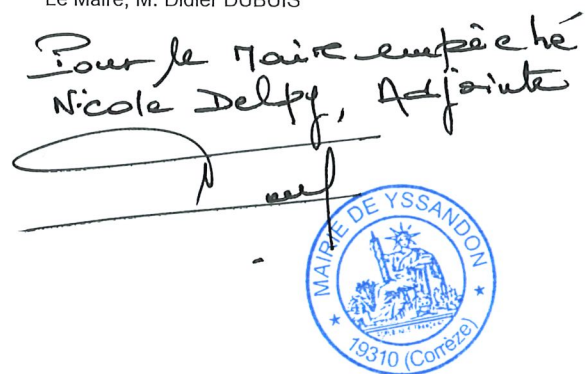 Le Maire, M. Didier DUBOIS
Pour le Maire empêché
Nicole Delpy, Adjointe
MAIRIE DE YSSANDON
19310 (Corrèze)